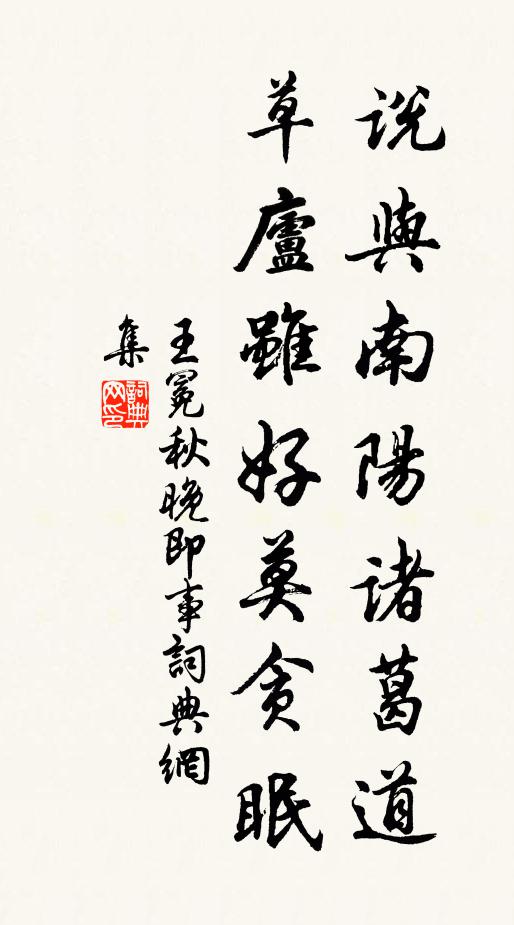 説與南陽諸葛道
草廬雖好莫貪眠
王冕秋晚即事詞典網
集
詞典
网印